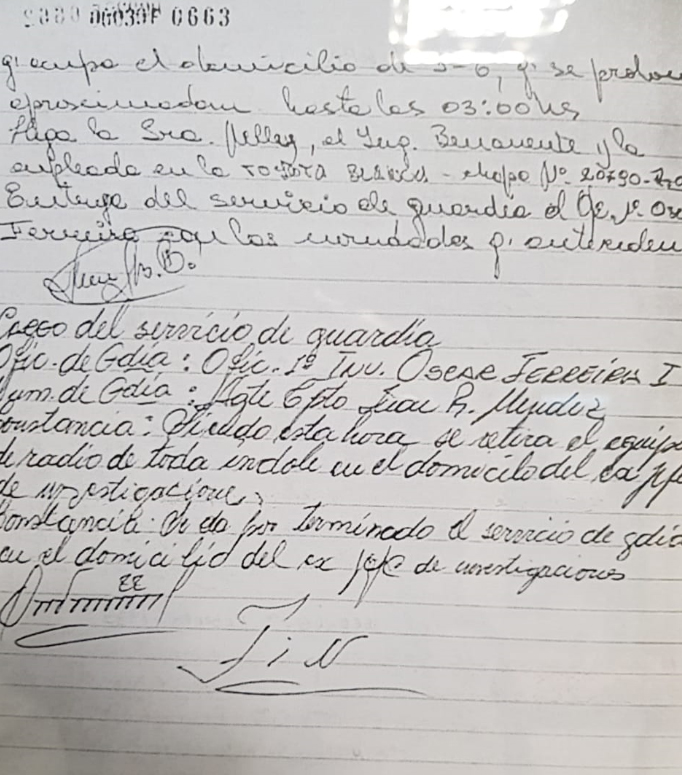 00030F 0663
q' ocupa el domicilio de S-6, q' se prolon
aproximadam hasta las 03:00 hs
llega la Sra. Nelley, el Ing. Benavente y la
empleada en la TOYOTA BLANCA - chapa Nº. 20790-
Entrega del servicio de guardia al Of. 1º. Os
Ferreira con las novedades q. anteceden
Paeeo del servicio de guardia
Ofic. de Gdia: Ofic. 1º INV. OSCAR FERREIRA I
Num. de Gdia: Agte Gpto Juan R. Mendez
constancia: Siendo esta hora se retira el equipo
de radio de toda indole en el domicilo del ex jefe
de investigaciones
Constancia: Se da por terminado el servicio de gdia
en el domicilio del ex jefe de investigaciones
FiN